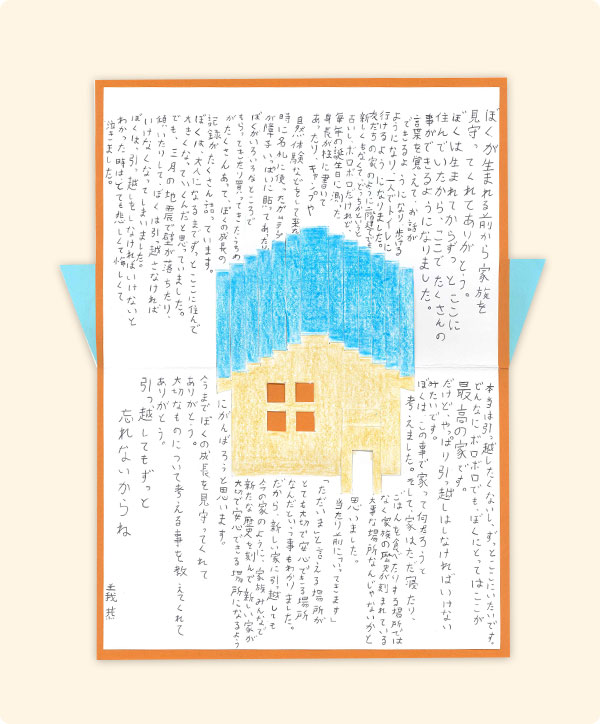 ぼくが生まれる前から家族を
見守ってくれてありがとう。
ぼくは生まれてからずっとここに
住んでいたから、ここでたくさんの
事ができるようになりました。
言葉を覚えて、お話が
できるようになり、歩ける
ようになり、一人でトイレに
行けるようになりました。
友だちの家のように二階建てでも
新しくもなくて、どっちかというと
古いし、ボロボロだけれど、
毎年の誕生日に測った
身長が柱に書いて
あったり、キャンプや
自然体験などをして来た
時に名札に使ったガムテープ
が障子いっぱいに貼ってあったり
ぼくがいろいろなところで
もらってきたり買ってきたこもの
がたくさんあって、ぼくの成長の
記録がたくさん詰っています。
ぼくは、大人になるまでずっとここに住んで
大きくなっていくんだと思っていました。
でも、三月の地震で壁が落ちたり、
傾いたりして、ぼくは引っ越さなければ
いけなくなってしまいました。
ぼくは、引っ越しをしなければいけないと
わかった時はとても悲しくて悔しくて
泣きました。
本当は引っ越したくないし、ずっとここにいたいです。
どんなにボロボロでも、ぼくにとってはここが
最高の家です。
だけど、やっぱり引っ越しはしなければいけない
みたいです。
ぼくは、この事で家って何だろうと
考えました。そして、家はただ寝たり、
ごはんを食べたりする場所では
なく家族の歴史が刻まれている
大事な場所なんじゃないかと
思いました。
当たり前に「いってきます」
「ただいま」と言える場所が
とても大切で安心できる場所
なんだという事もわかりました。
だから、新しい家に引っ越しても
今の家のように、家族みんなで
新たな歴史を刻んで新しい家が
大切で安心できる場所になるよう
にがんばろうと思います。
今までぼくの成長を見守ってくれて
ありがとう。
大切なものについて考える事を教えてくれて
ありがとう。
引っ越してもずっと
忘れないからね